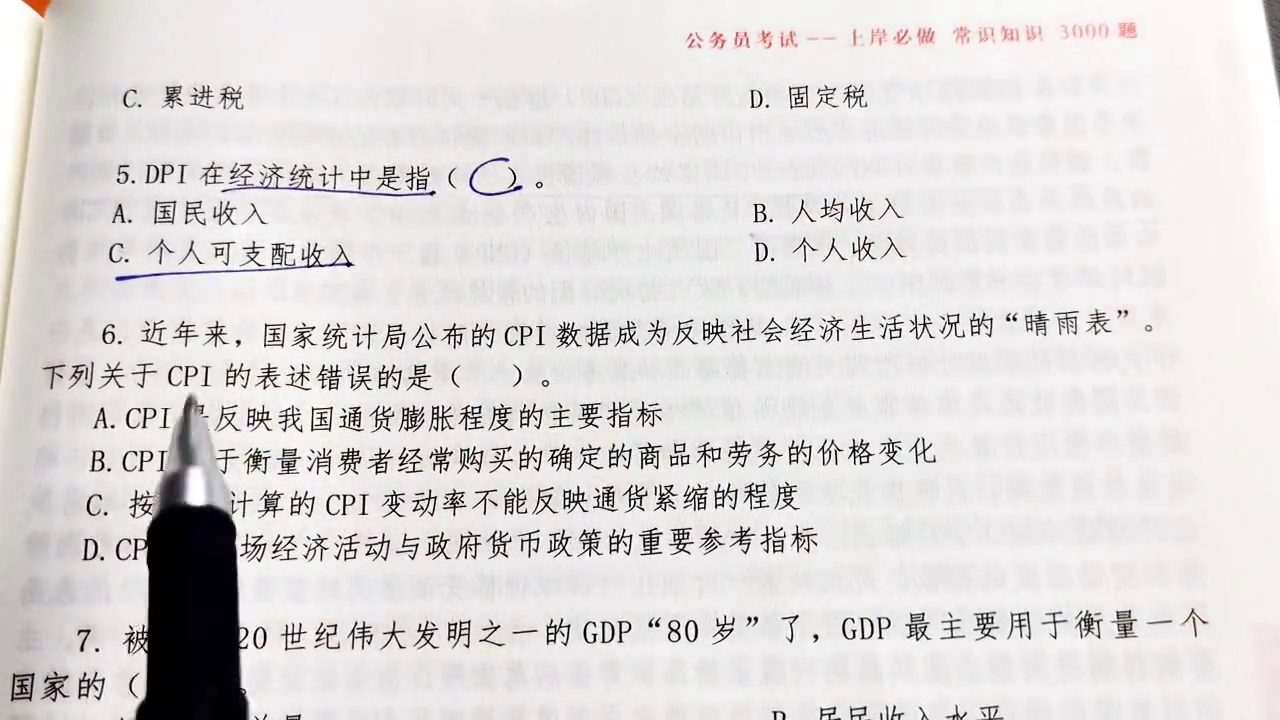 公务员考试——上岸必做 常识知识 3000题
C. 累进税 D. 固定税
5.DPI 在经济统计中是指（ ）。
A. 国民收入 B. 人均收入
C. 个人可支配收入 D. 个人收入
6. 近年来，国家统计局公布的 CPI 数据成为反映社会经济生活状况的“晴雨表”。
下列关于 CPI 的表述错误的是（ ）。
A.CPI 反映我国通货膨胀程度的主要指标
B.CPI 于衡量消费者经常购买的确定的商品和劳务的价格变化
C. 按 计算的 CPI 变动率不能反映通货紧缩的程度
D.CP 场经济活动与政府货币政策的重要参考指标
7. 被 20 世纪伟大发明之一的 GDP“80 岁”了，GDP 最主要用于衡量一个
国家的（ 。